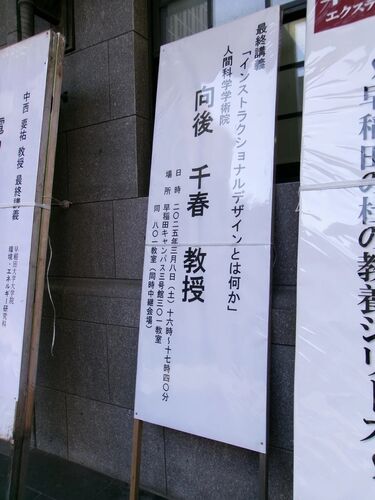 エクステ
早稲田の杜の教養シリーズ
最終講義
「インストラクショナルデザインとは何か」
人間科学学術院
向後 千春 教授
日時 二〇二五年三月八日(土)十六時~十七時四〇分
場所 早稲田キャンパス三号館三〇一教室
同 八〇一教室(同時中継会場)
中西 要祐 教授 最終講義
早稲田大学大学院
環境・エネルギー研究科